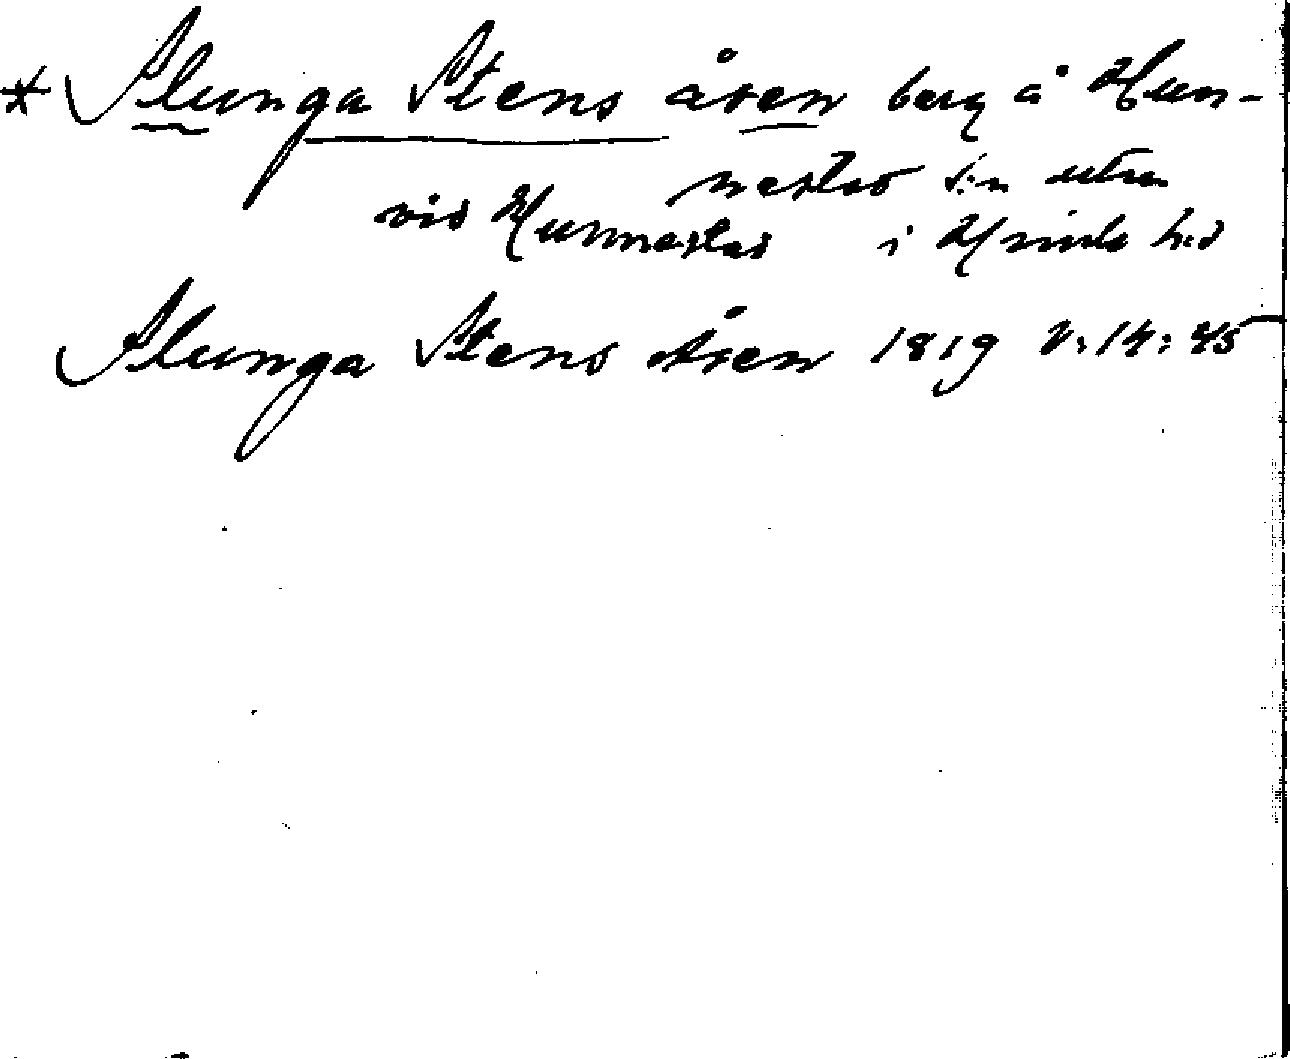 * Slunga Stens åsen berg å Hun-
nestad s:n utan
vid Hunnestad i Himle hd
Slunga Stens Åsen 1819 V:14:45